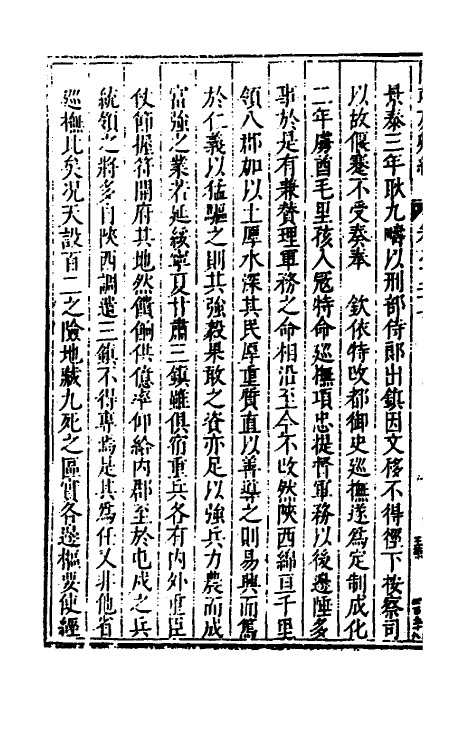 景泰三年耿九疇以刑部侍郎出鎮因文移不得徑下按察司
以故偃蹇不受奏奉　欽依特改都御史巡撫遂爲定制成化
二年虜酋毛里孩入寇特命巡撫項忠提督軍務以後邊陲多
事於是有兼贊理軍務之命相沿至今不改然陝西綿亘千里
領八郡加以土厚水深其民厚重質直以善導之則易興而篤
於仁義以猛驅之則其強毅果敢之資亦足以強兵力農而成
富強之業若延綏寧夏甘肅三鎮雖俱宿重兵各有內外重臣
仗節握符開府其地然饋餉供億率仰給內郡至於屯戍之兵
統領之將多自陝西調遣三鎮不得專焉是其爲任又非他省
巡撫比矣况天設百二之險地藏九死之區實各邊樞要使經